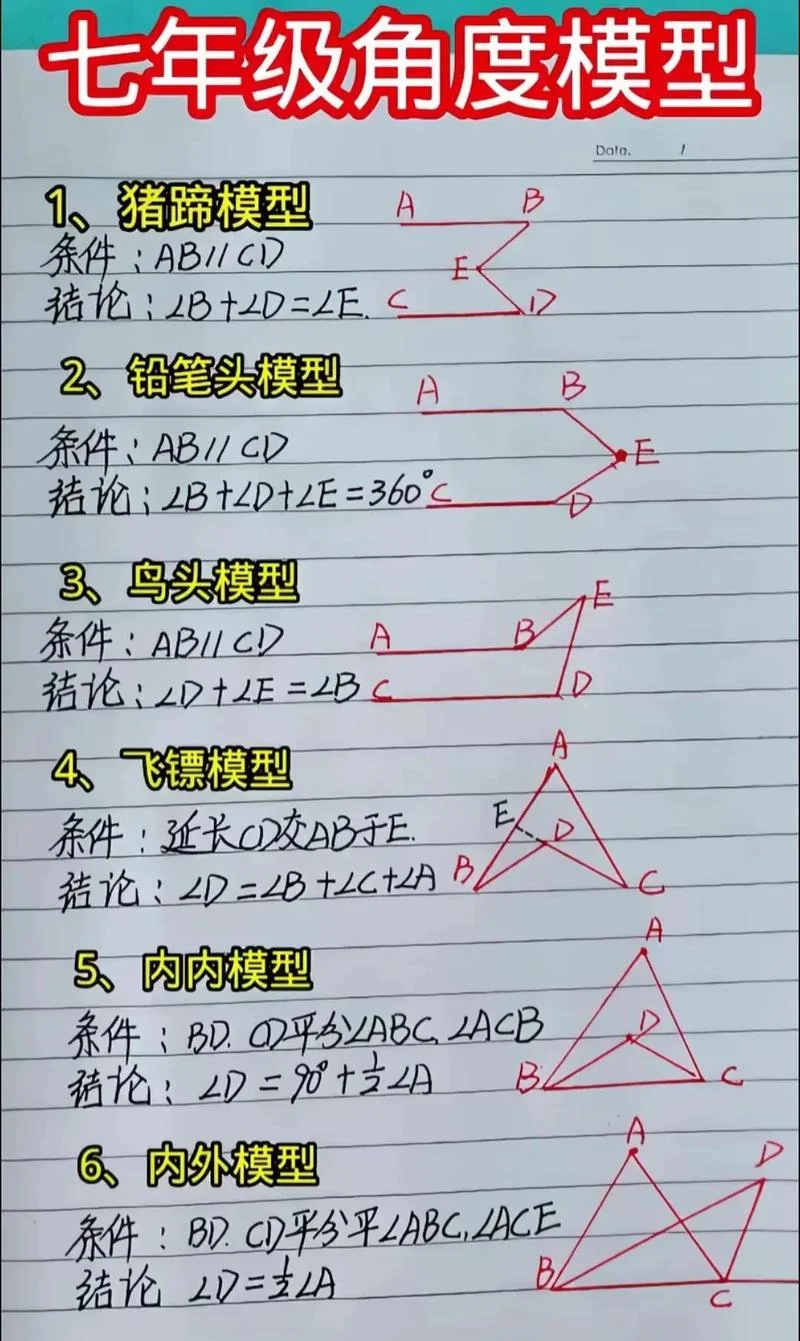 七年级角度模型
Date. /
1、猪蹄模型
条件：AB//CD
结论：∠B+∠D=∠E.
A B
E
C D
2、铅笔头模型
条件：AB//CD
结论：∠B+∠D+∠E=360°
A B
E
C D
3、鸟头模型
条件：AB//CD
结论：∠D+∠E=∠B
E
A B
C D
4、飞镖模型
条件：延长CD交AB于E.
结论：∠D=∠B+∠C+∠A
A
E D
B C
5、内内模型
条件：BD.CD平分∠ABC,∠ACB
结论：∠D=90°+½∠A
A
D
B C
6、内外模型
条件：BD.CD平分平∠ABC,∠ACE
结论 ∠D=½∠A
A D
B C